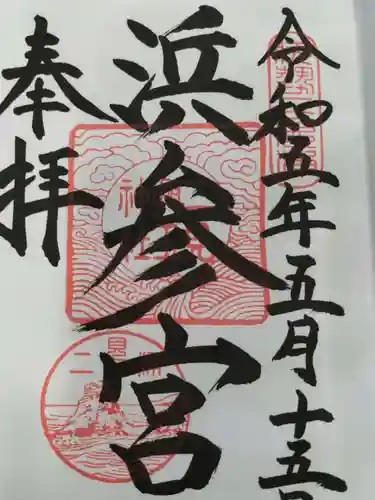 令和五年五月十五
浜参宮
奉拝
二見